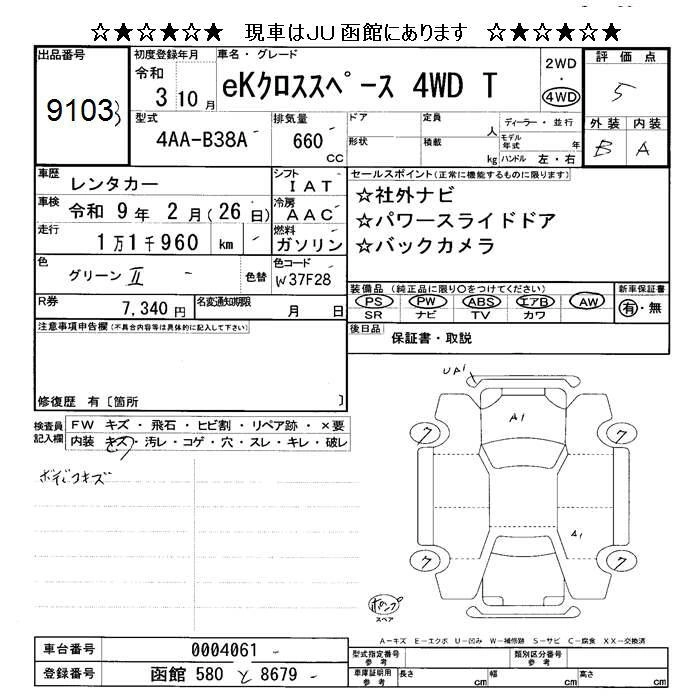 ☆★☆★☆★ 現車はJU函館にあります ☆★☆★☆★
出品番号 初度登録年月 車名・グレード 2WD・4WD 評価点
9103 令和 3 10月 eKクロススペース 4WD T 5
型式 排気量 ドア 定員 人 ディーラー・並行 外装 内装
4AA-B38A 660 CC 形状 積載 kg モデル年式 年 ハンドル 左・右 B A
車歴 レンタカー シフト IAT セールスポイント(正常に機能するものに限ります)
車検 令和 9年 2月(26日) 冷房 AAC ☆社外ナビ
走行 1万1千960 km 燃料 ガソリン ☆パワースライドドア
☆バックカメラ
色 グリーンⅡ 色替 色コード W37F28
装備品(純正品に限り○をつけてください) 新車保証書
R券 7,340円 名変通知期限 月 日 PS PW ABS エアB AW 有・無
SR ナビ TV カワ
注意事項申告欄(不具合内容等は具体的に記入して下さい) 後日品 保証書・取説
修復歴 有〔箇所 〕
検査員記入欄 FW キズ・飛石・ヒビ割・リペア跡・×要
内装 キズ・汚レ・コゲ・穴・スレ・キレ・破レ
ボディ小キズ
UA1
A1
ワ ワ
A1
ワ ワ
スペア
A-キズ E-エクボ U-凹み W-補修跡 S-サビ C-腐食 XX-交換済
車台番号 0004061 型式指定番号 参考 類別区分番号 参考
登録番号 函館 580 と 8679 車庫証明用 参考 長さ cm 幅 cm 高さ cm